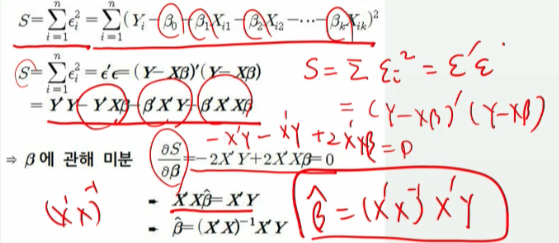 S=∑ᵢ₌₁ⁿ ϵᵢ²=∑ᵢ₌₁ⁿ(Yᵢ−β₀−β₁Xᵢ₁−β₂Xᵢ₂−⋯−βₖXᵢₖ)²
S=∑ᵢ₌₁ⁿ ϵᵢ²=ϵ′ϵ=(Y−Xβ)′(Y−Xβ)
=Y′Y−Y′Xβ−β′X′Y−β′X′Xβ
S=∑εᵢ²=ε′ε
=(Y−Xβ)′(Y−Xβ)
−X′Y−X′Y+2X′Xβ=0
⇒ β에 관해 미분 ∂S/∂β=−2X′Y+2X′Xβ=0
(X′X)⁻¹
➨ X′Xβ̂=X′Y
➨ β̂=(X′X)⁻¹X′Y
β̂=(X′X)⁻¹X′Y